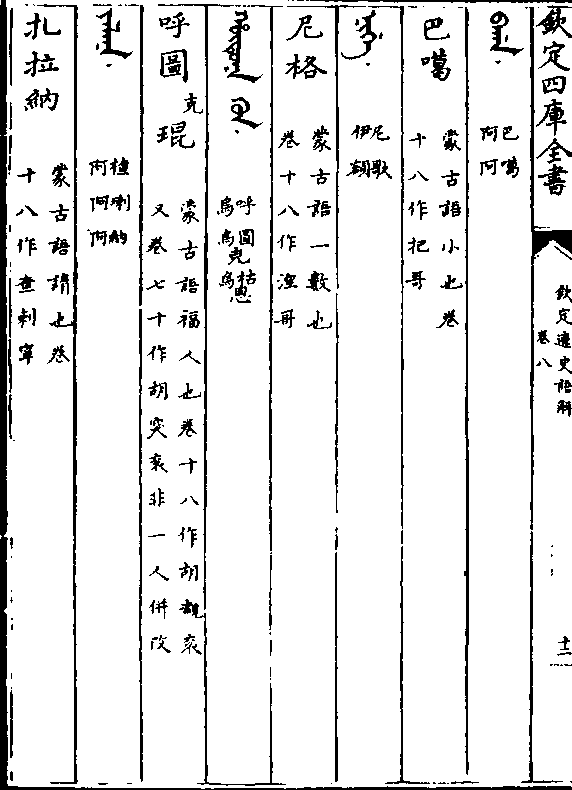 欽定四庫全書
欽定遼史語解
卷八
十二
巴噶
阿阿
巴噶
蒙古語小也卷
十八作把哥
尼歌
伊額
尼格
蒙古語一數也
卷十八作湼哥
呼圖克枯恩
烏烏烏
呼圖克琨
蒙古語福人也卷十八作胡覩袞
又卷七十作胡突袞非一人併改
楂喇納
阿阿阿
扎拉納
蒙古語請也卷
十八作查剌寧